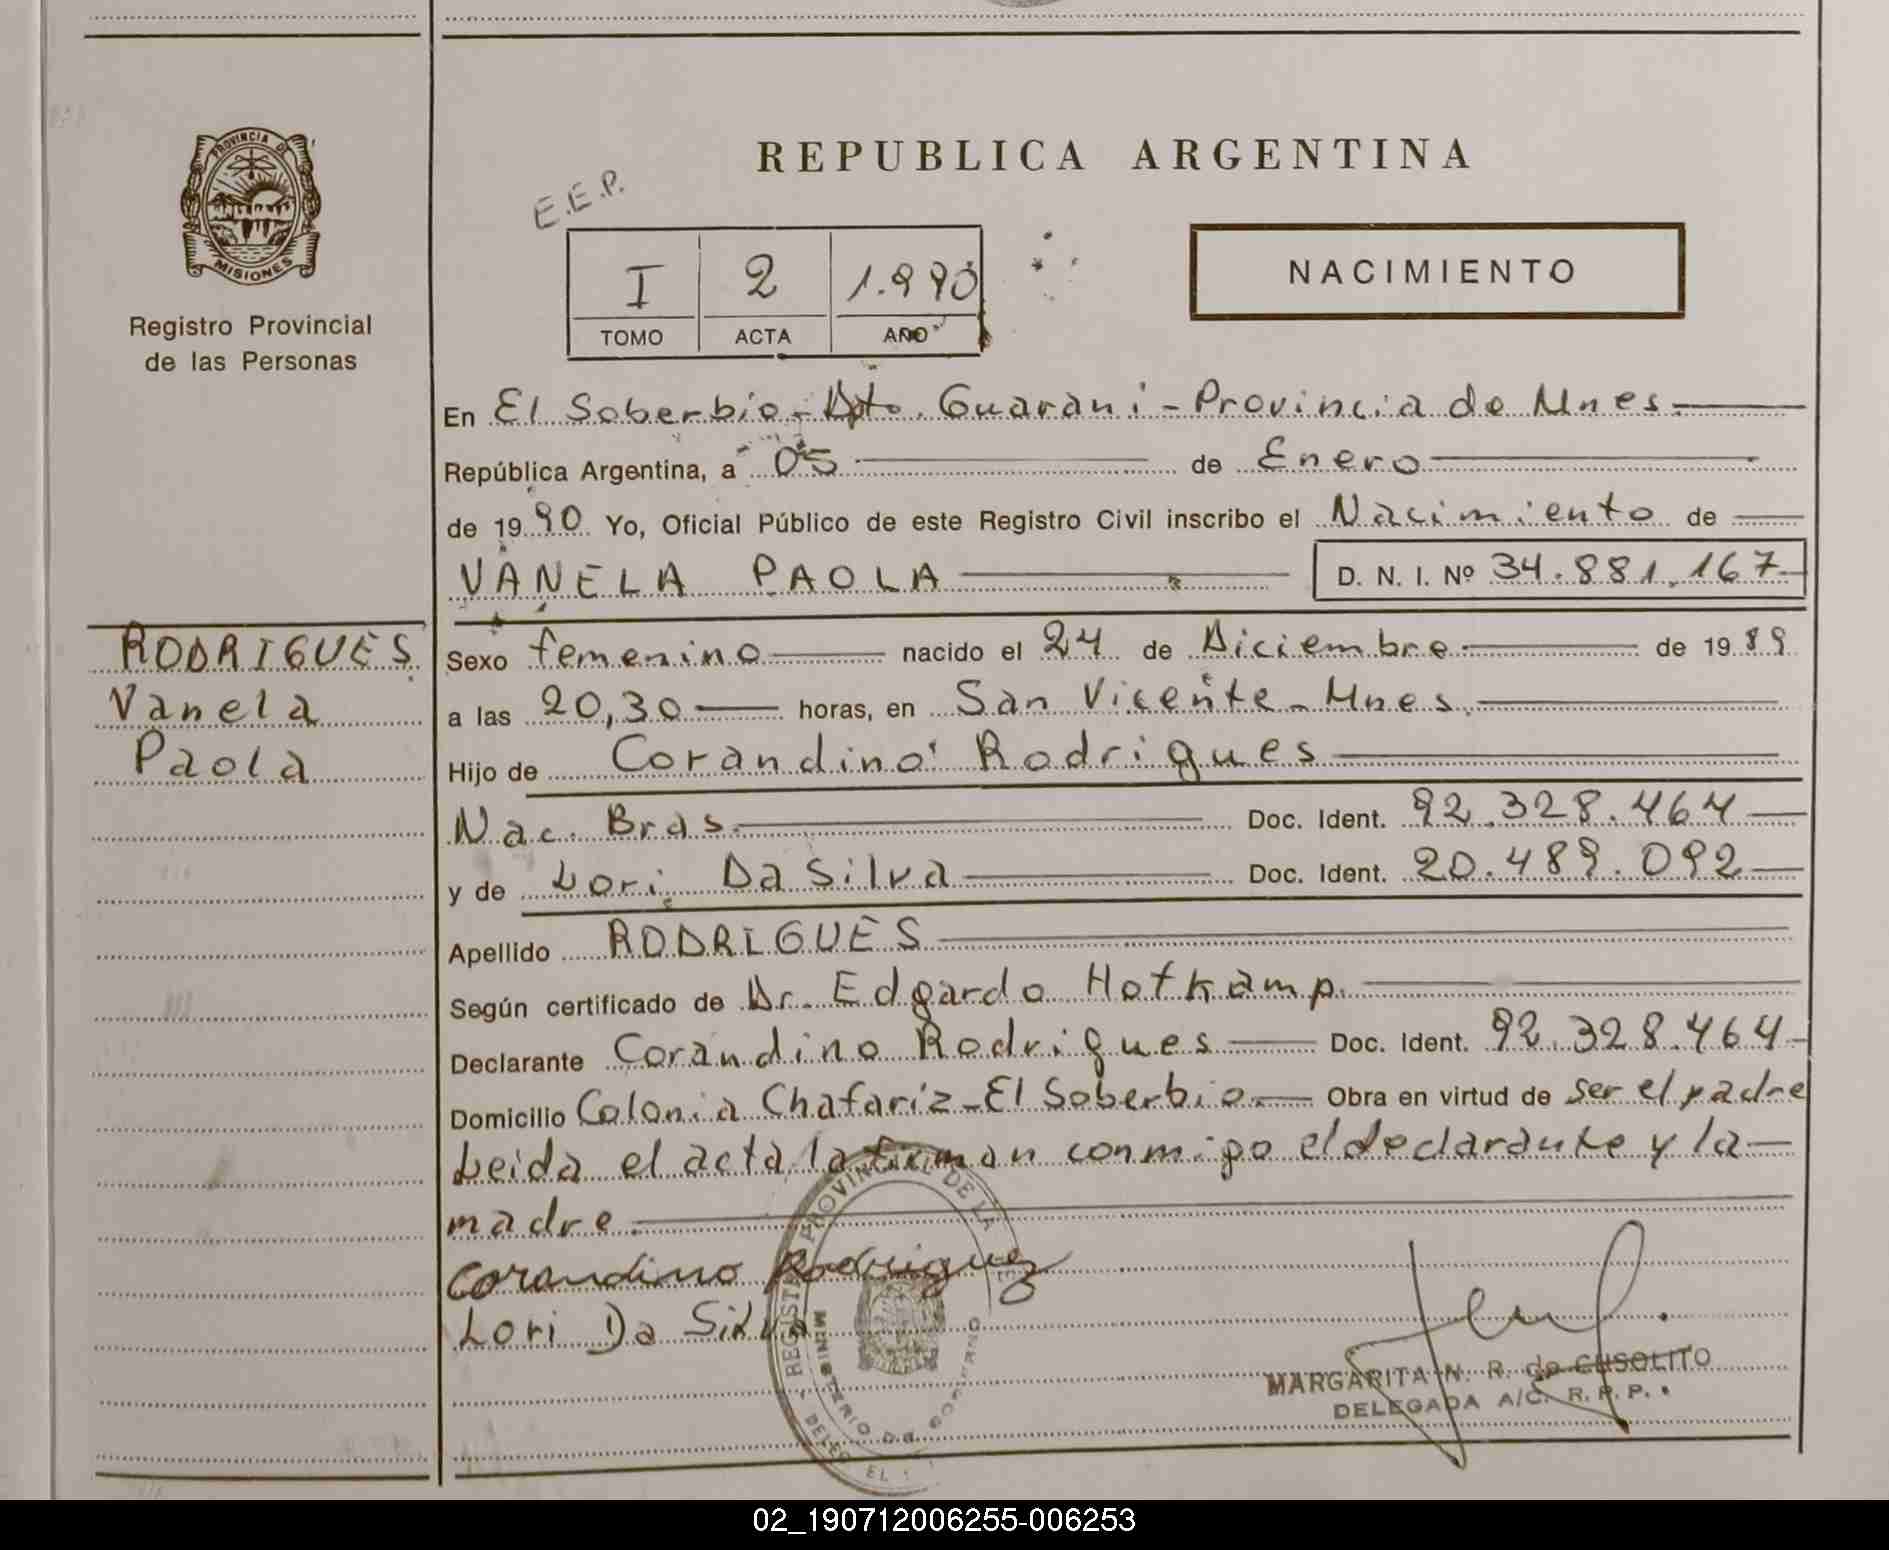 PROVINCIA DE
MISIONES
Registro Provincial
de las Personas
REPUBLICA ARGENTINA
E.E.P.
I 2 1.990
TOMO ACTA AÑO
NACIMIENTO
En El Soberbio - Dpto. Guaraní - Provincia de Mnes.
República Argentina, a 05 de Enero
de 1990 Yo, Oficial Público de este Registro Civil inscribo el Nacimiento de
VANELA PAOLA D. N. I. Nº 34.881.167
RODRIGUES
Vanela
Paola
Sexo femenino nacido el 24 de Diciembre de 1989
a las 20,30 horas, en San Vicente - Mnes.
Hijo de Corandino Rodrigues
Nac. Bras. Doc. Ident. 92.328.464
y de Lori Da Silva Doc. Ident. 20.489.092
Apellido RODRIGUES
Según certificado de Dr. Edgardo Hotkamp.
Declarante Corandino Rodrigues Doc. Ident. 92.328.464
Domicilio Colonia Chafariz - El Soberbio. Obra en virtud de ser el padre
Leida el acta la firman conmigo el declarante y la
madre.
Corandino Rodriguez
Lori Da Silva
MARGARITA N. R. de CUSOLITO
DELEGADA A/C. R. P. P.
REGISTRO PROVINCIAL DE LA
MINISTERIO DE GOBIERNO
DELEG EL
02_190712006255-006253